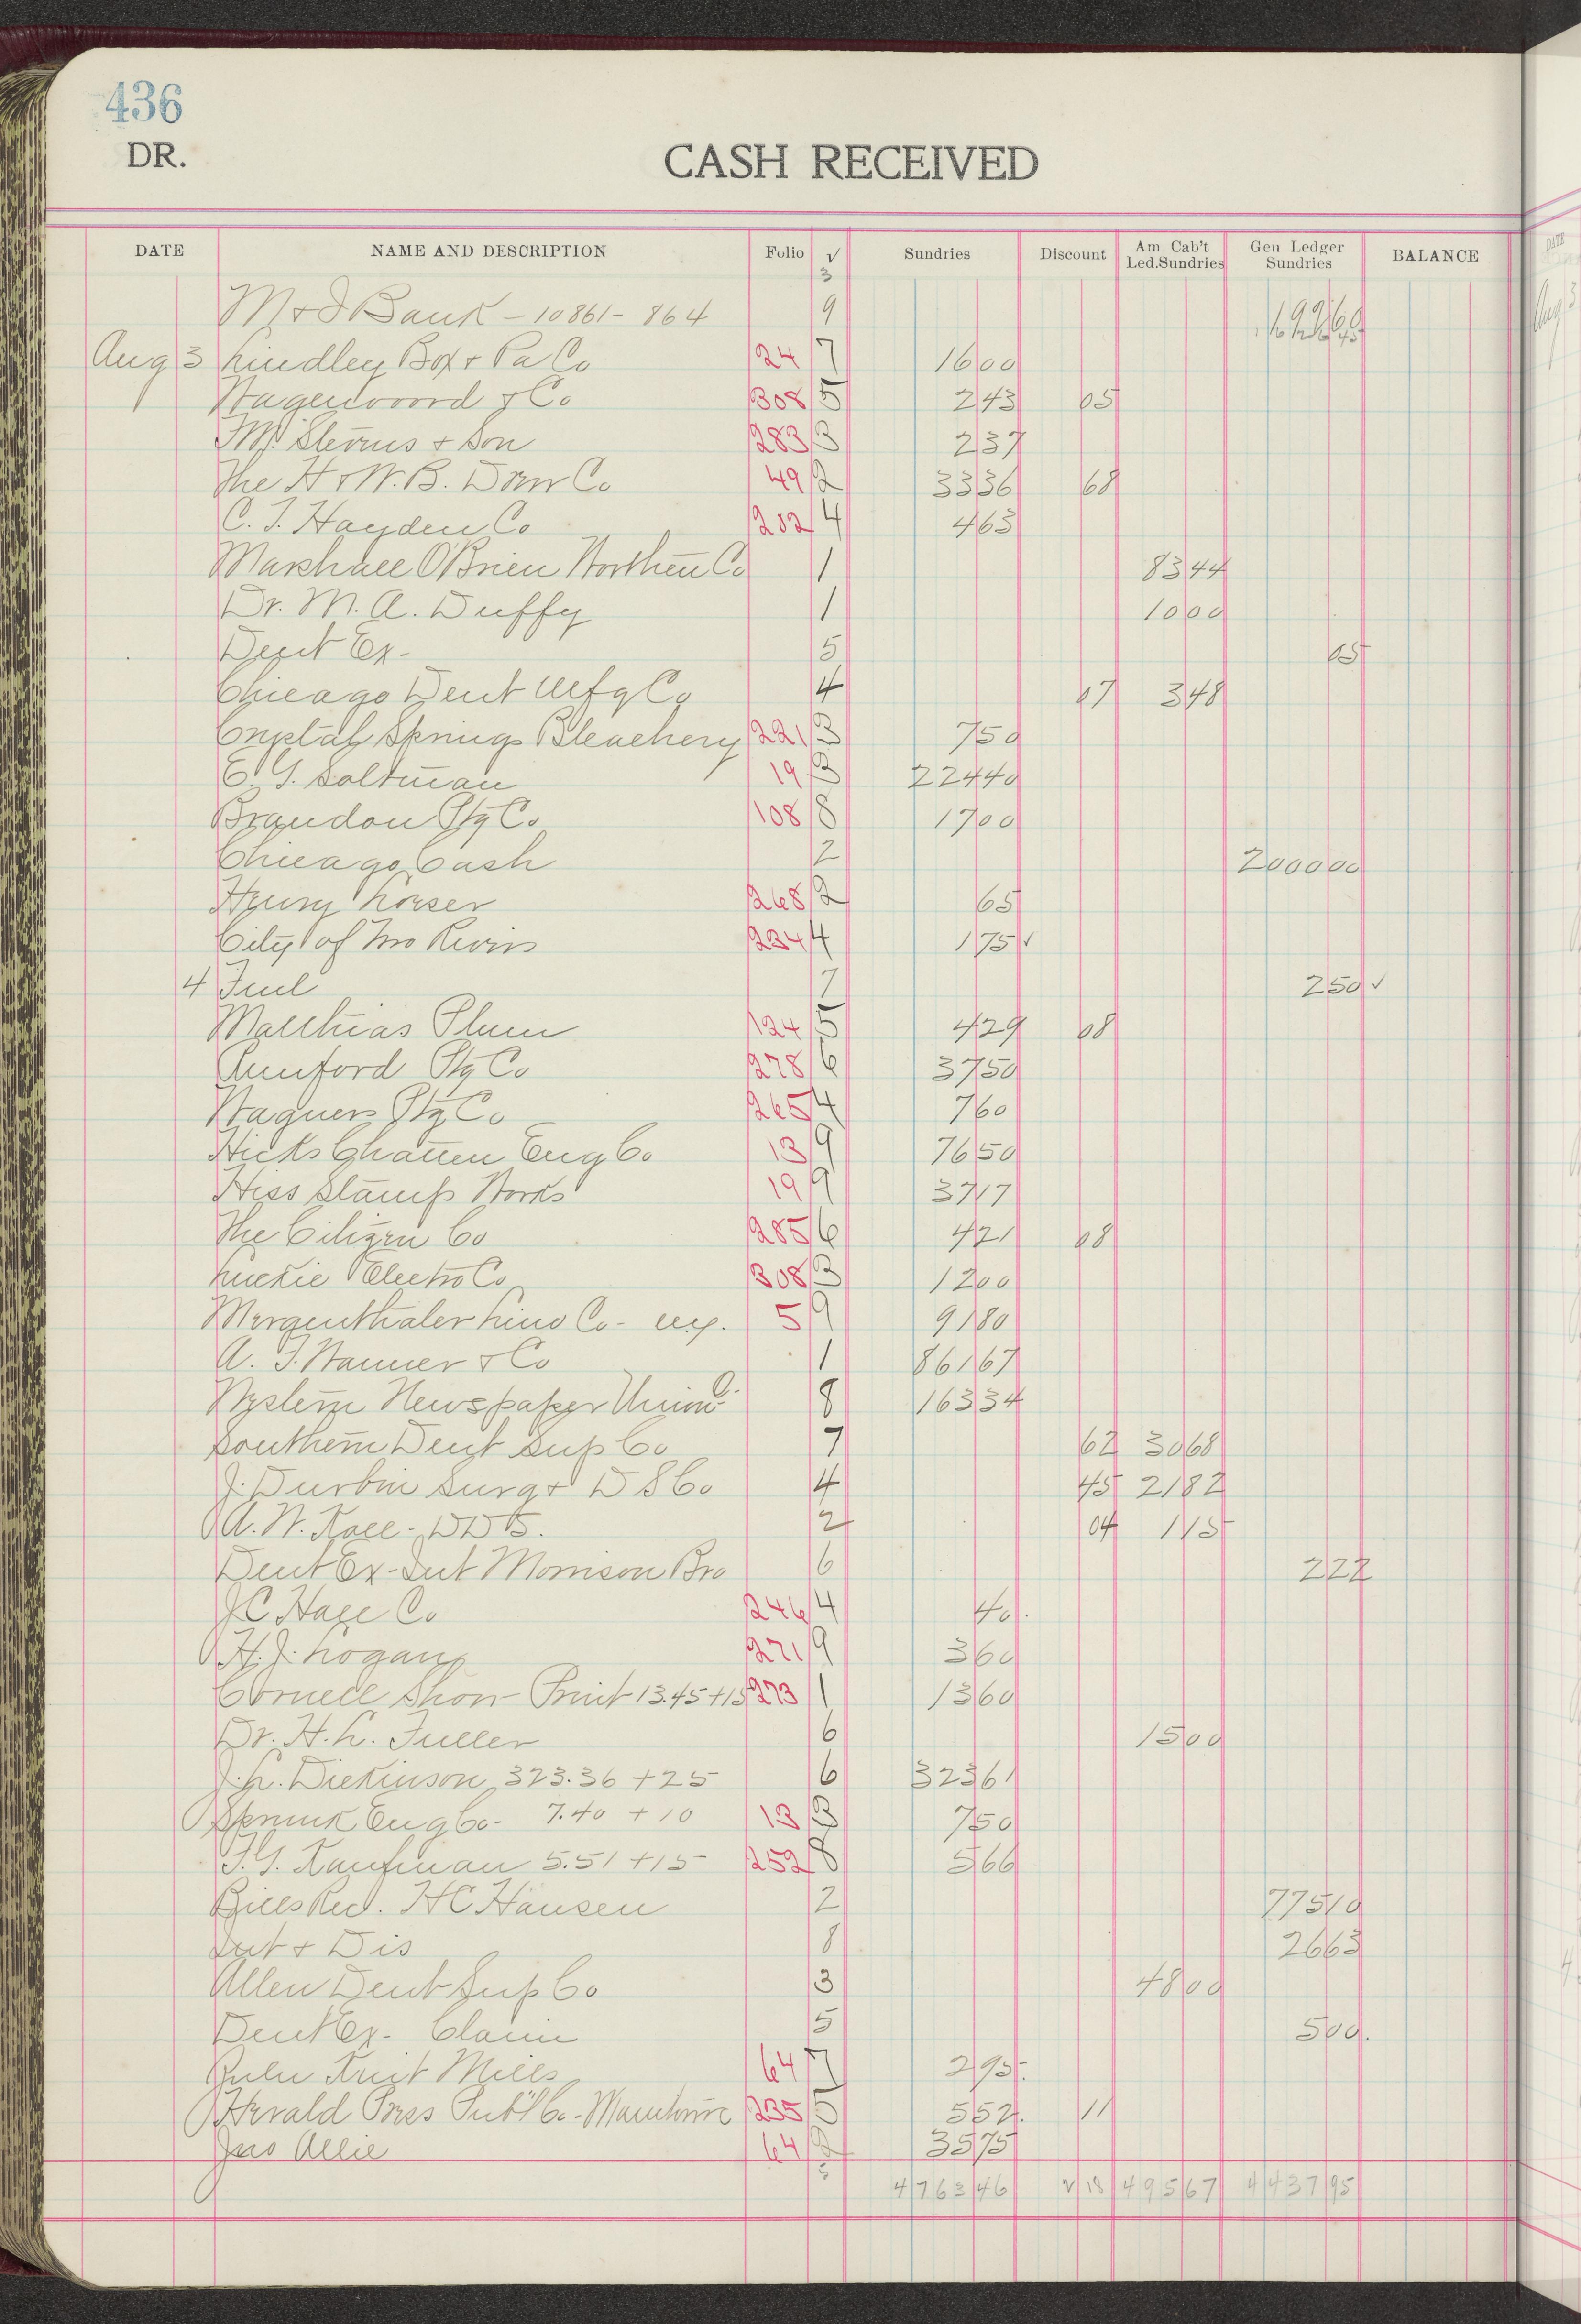 436
DR.
CASH RECEIVED
DATE NAME AND DESCRIPTION Folio √ Sundries Discount Am Cab't Led.Sundries Gen Ledger Sundries BALANCE
3
M & I Bank - 10861 - 864 9 19260
Aug 3 Lindley Box & Pa Co 24 7 1600
Wagenvoord & Co 308 5 243 05
F.M. Stevens & Son 283 3 237
The H & W. B. Drew Co 49 2 3336 68
C. T. Hayden Co 202 4 463
Marshall O'Brien Worthen Co 1 8344
Dr. M. A. Duffy 1 1000
Dent Ex- 5 05
Chicago Dent Mfg Co 4 07 348
Crystal Springs Bleachery 221 3 750
E. G. Soltman 19 3 22440
Brandon Ptg Co 108 8 1700
Chicago Cash 2 200000
Henry Loeser 268 2 65
City of Two Rivers 234 4 175 √
4 Fuel 7 250 √
Matthias Plum 124 5 429 08
Rumford Ptg Co 278 6 3750
Wagners Ptg Co 265 4 760
Hicks Chatten Eng Co 13 9 7650
Hiss Stamp Works 19 9 3717
The Citizen Co 285 6 421 08
Luckie Electro Co 308 3 1200
Mergenthaler Lino Co - N.Y. 5 9 9180
A. F. Wanner & Co 1 86167
Western Newspaper Union O. 8 16334
Southern Dent Sup Co 7 62 3068
J. Durbin Surg & D S Co 4 45 2182
A. W. Kall - DDS. 2 04 115
Dent Ex - Int Morrison Bro 6 222
J C Hall Co 246 4 40.
H. J. Logan 271 9 360
Cornell Show Print 13.45 + 15 273 1 1360
Dr. H. L. Fuller 6 1500
J. L. Dickinson 323.36 + 25 6 32361
Sprunk Eng Co - 7.40 + 10 13 3 750
F. G. Kaufman 5.51 + 15 252 8 566
Bills Rec. H C Hansen 2 77510
Int & Dis 8 2663
Allen Dent Sup Co 3 4800
Dent Ex - Claim 5 500.
Knit Mills 64 7 295.
Herald Press Publ Co - 235 5 552. 11
Jno Allie 64 2 3575
476346 218 49567 443795